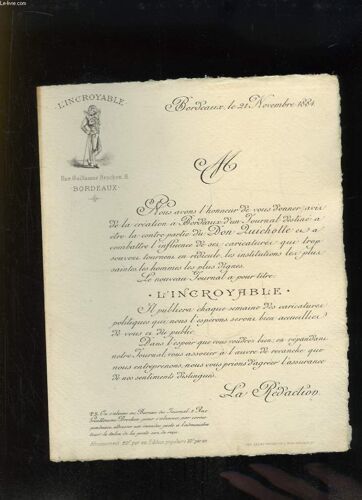 L'INCROYABLE
Rue Guillaume Brochon, 8
BORDEAUX
Bordeaux, le 21 Novembre 1884
M
Nous avons l'honneur de vous donner avis
de la création à Bordeaux d'un Journal destiné à
être la contre partie du Don Quichotte et à
combattre l'influence de ses caricatures qui trop
souvent tournent en ridicule les institutions les plus
saintes, les hommes les plus dignes.
Le nouveau Journal a pour titre:
L'INCROYABLE
Il publiera chaque semaine des caricatures
politiques qui, nous l'espérons, seront bien accueillies
de vous et du public.
Dans l'espoir que vous voudrez bien, en répandant
notre Journal, vous associer à l'œuvre de revanche que
nous entreprenons, nous vous prions d'agréer l'assurance
de nos sentiments distingués.
La Rédaction
P.S. On s'abonne au Bureau du Journal, 8, Rue
Guillaume Brochon, pour s'abonner par corres-
pondance,
Abonnement: par an. Edition populaire par an
www.le-livre.com